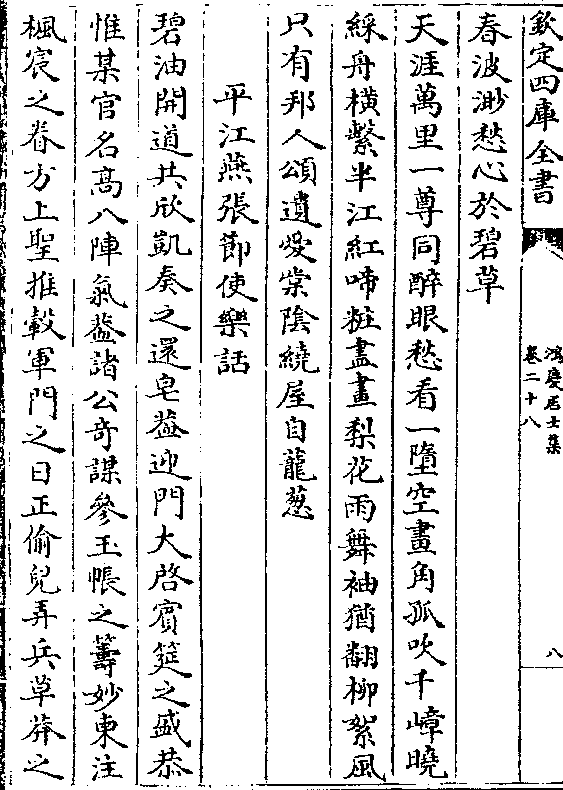 欽定四庫全書
鴻慶居士集
卷二十八
八
春波渺愁心於碧草
天涯萬里一尊同醉眼愁看一墮空畫角孤吹千嶂曉
綵舟橫繫半江紅啼粧盡畫梨花雨舞袖猶翻柳絮風
只有邦人頌遺愛棠陰繞屋自蘢葱
平江燕張節使樂話
碧油開道共欣凱奏之還皂葢迎門大啓賓筵之盛恭
惟某官名髙八陣氣葢諸公竒謀參玉帳之籌妙柬注
楓宸之眷方上聖推轂軍門之日正偷兒弄兵草莽之